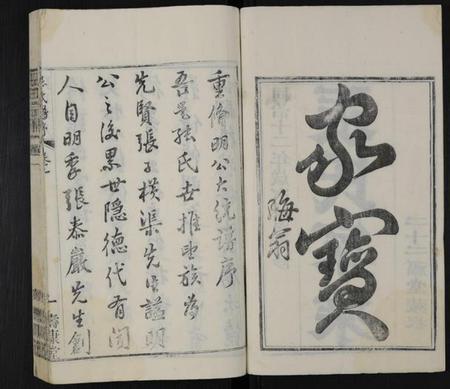 家寶
晦翁
重脩明公大統譜序
吾邑張氏世推望族為
先賢張子橫渠先生諡明
公之後累世隱德代有聞
人自明季張泰巖先生創